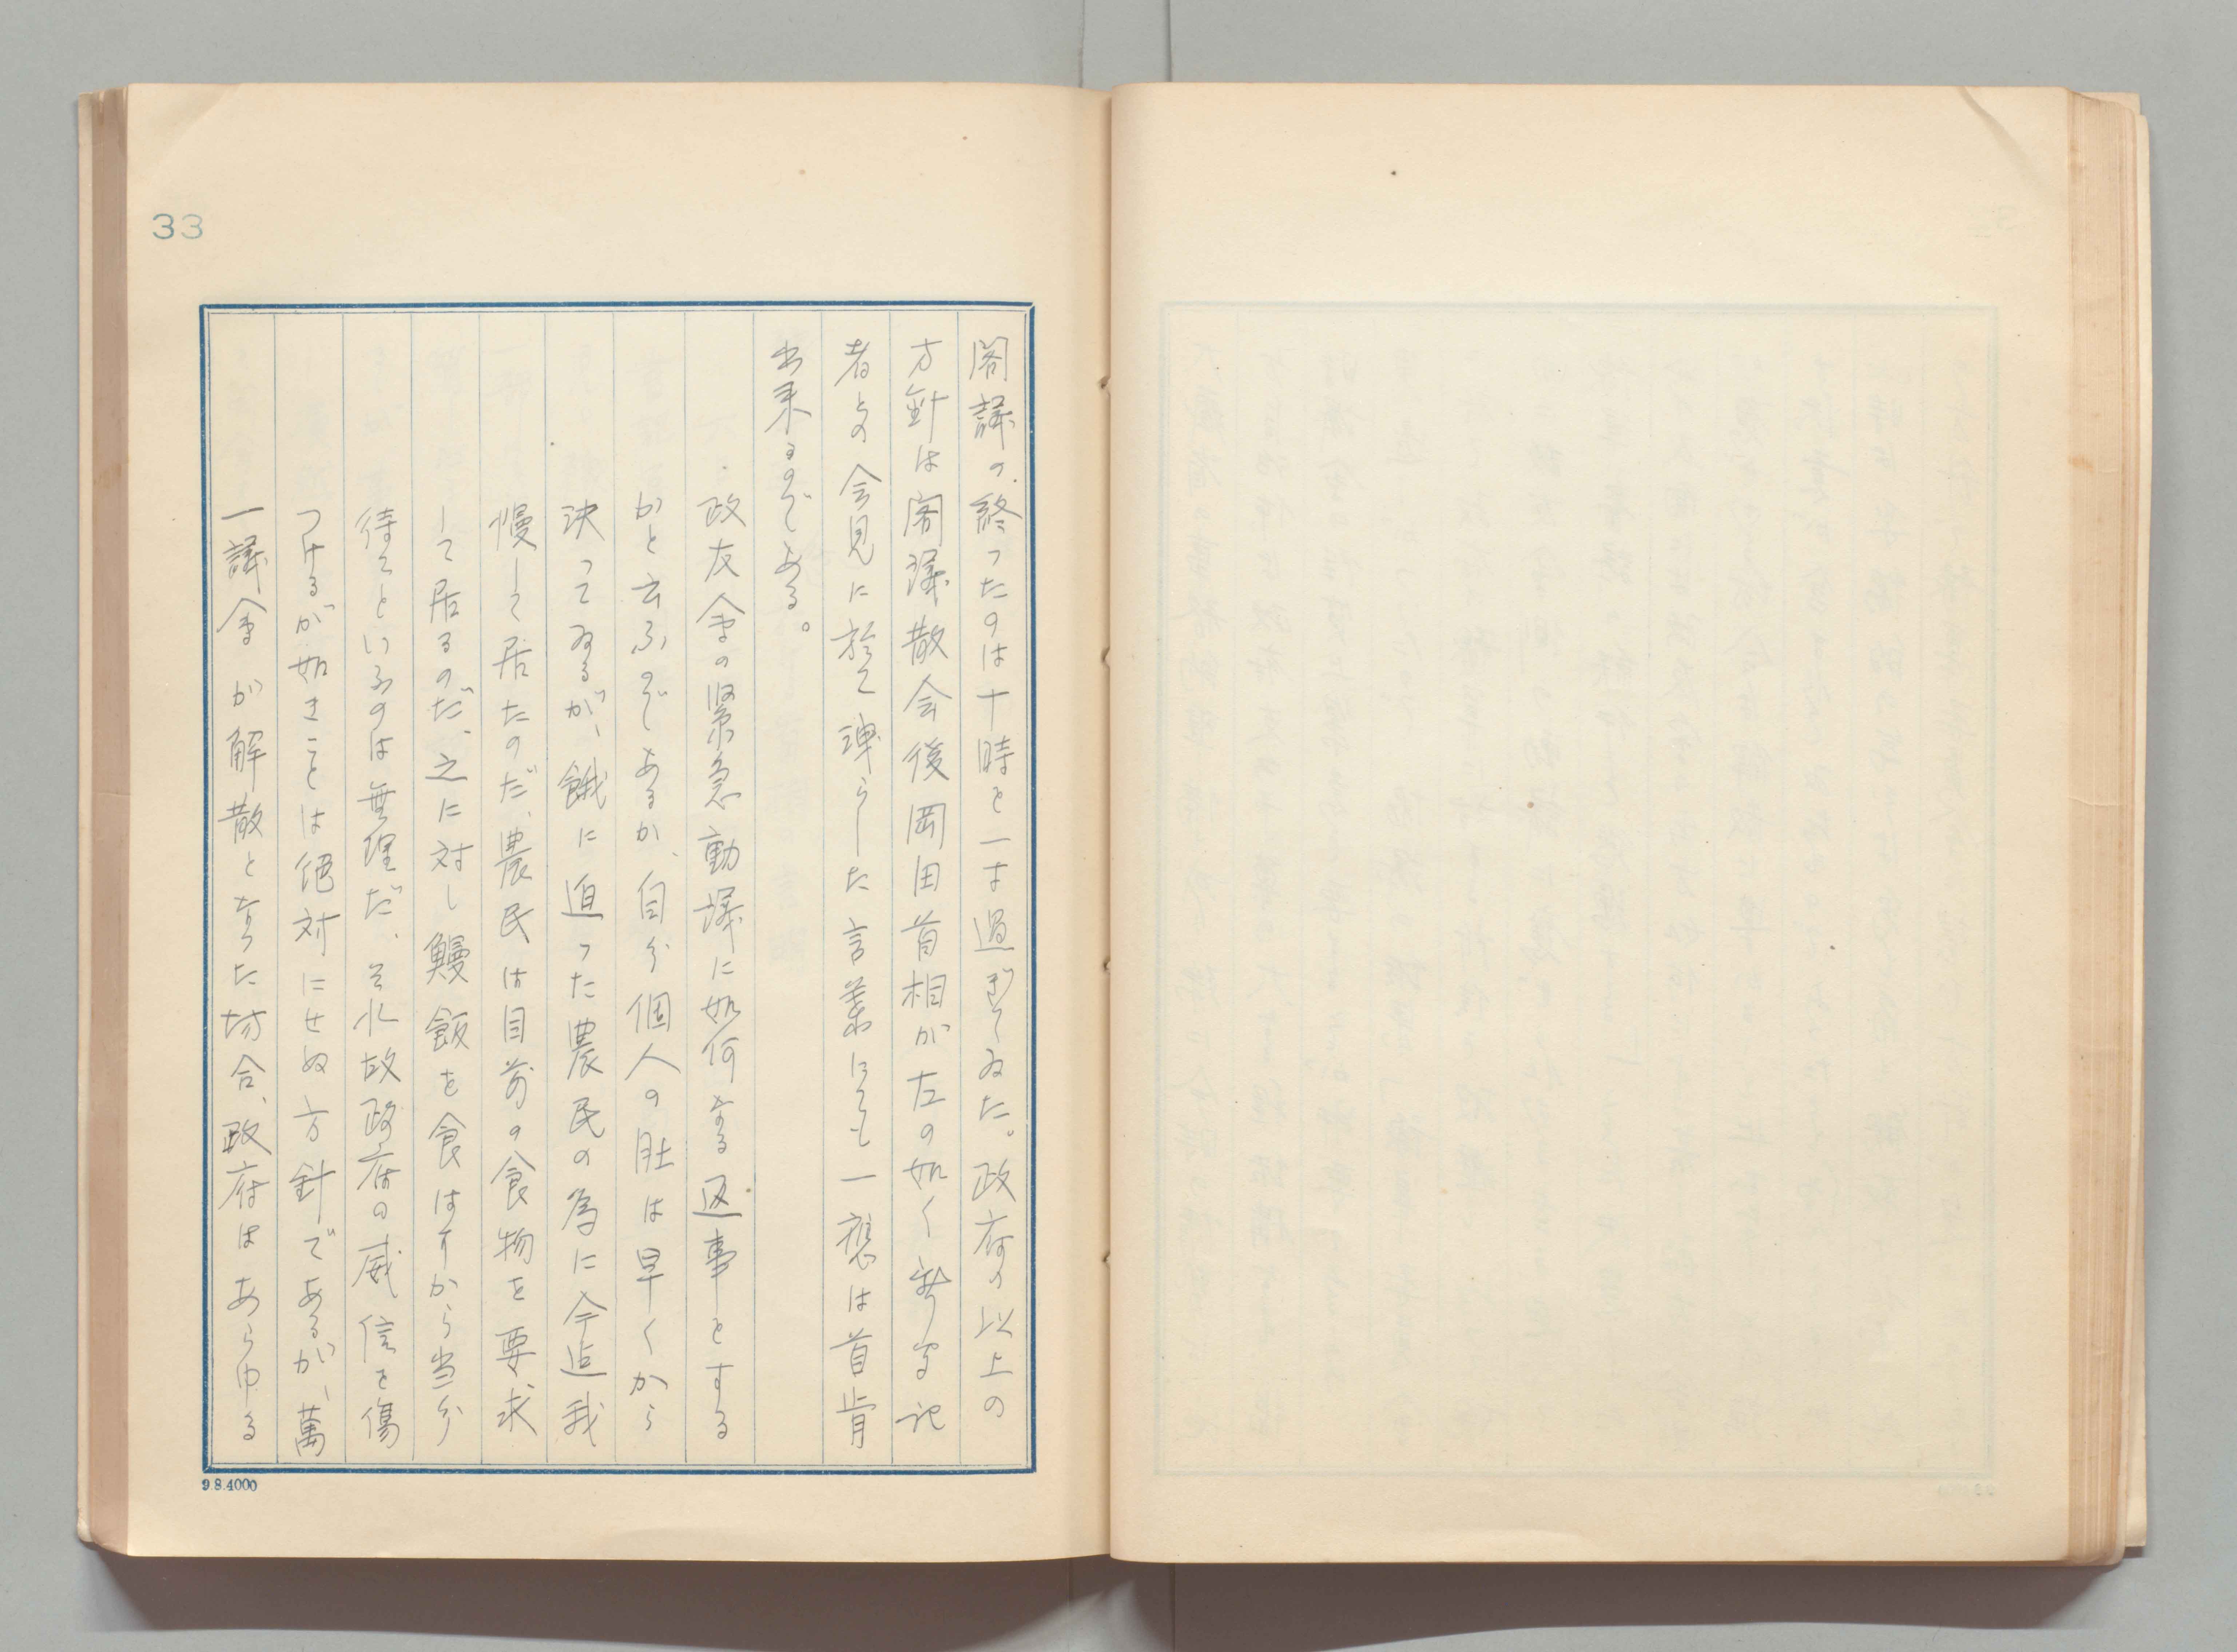 閣議の終つたのは十時を一寸過ぎてゐた。政府の以上の
方針は閣議散会後岡田首相が左の如く新聞記
者との会見に於て洩らした言葉にても一應は首肯
出来るのである。
政友會の緊急動議に如何なる返事とする
かと云ふのであるか、自分個人の肚は早くから
決ってゐるが、餓に迫つた農民の為に今迄我
慢して居たのだ、農民は目前の食物を要求
して居るのだ、之に対し鰻飯を食はすから当分
待てといふのは無理だ、それ故政府の威信を傷
つけるが如きことは絶対にせぬ方針であるが、萬
一議會が解散となつた場合、政府はあらゆる
33
9.8.4000